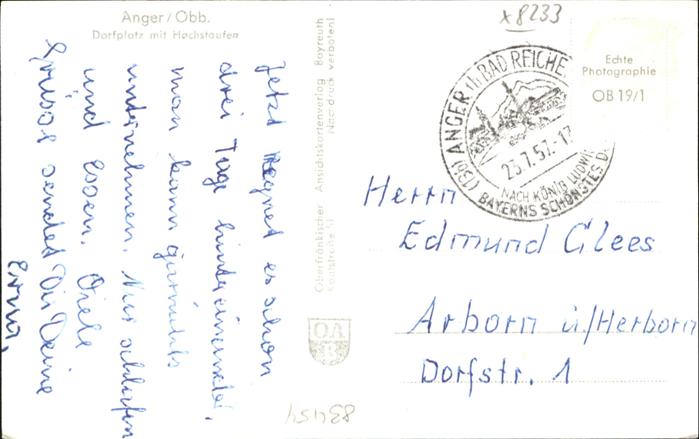 Anger/Obb.
Dorfplatz mit Hochstaufen
Jetzt regnet es schon
drei Tage hintereinander,
man kann garnichts
unternehmen. Nur schlafen
und Essen. Viele
Grüsse sendet Dir Deine
Erna,
Oberfränkischer Ansichtskartenverlag Bayreuth
Nachdruck verboten!
OAV
B
x8233
(13b) ANGER ü. BAD REICHE
23.7.57.-17
NACH KÖNIG LUDWIG
BAYERNS SCHÖNSTES D
Echte
Photographie
OB 19/1
Herrn
Edmund Clees
Arborn ü/Herborn
Dorfstr. 1